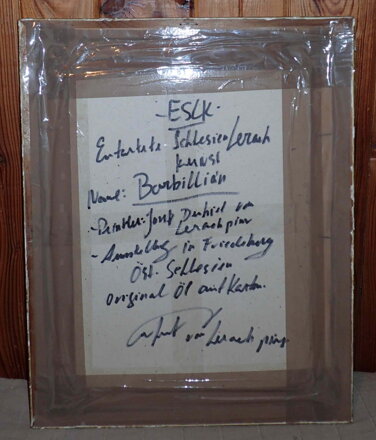 - ESLK -
Entartete - Schlesien/Lerach
Kunst
Name: Barbillian
- Painter: Josef Daniel von
Lerachpiur
- Ausstellung in Friedeburg
Öst. Schlesien
Original Öl auf Karton.
von Lerachpiur